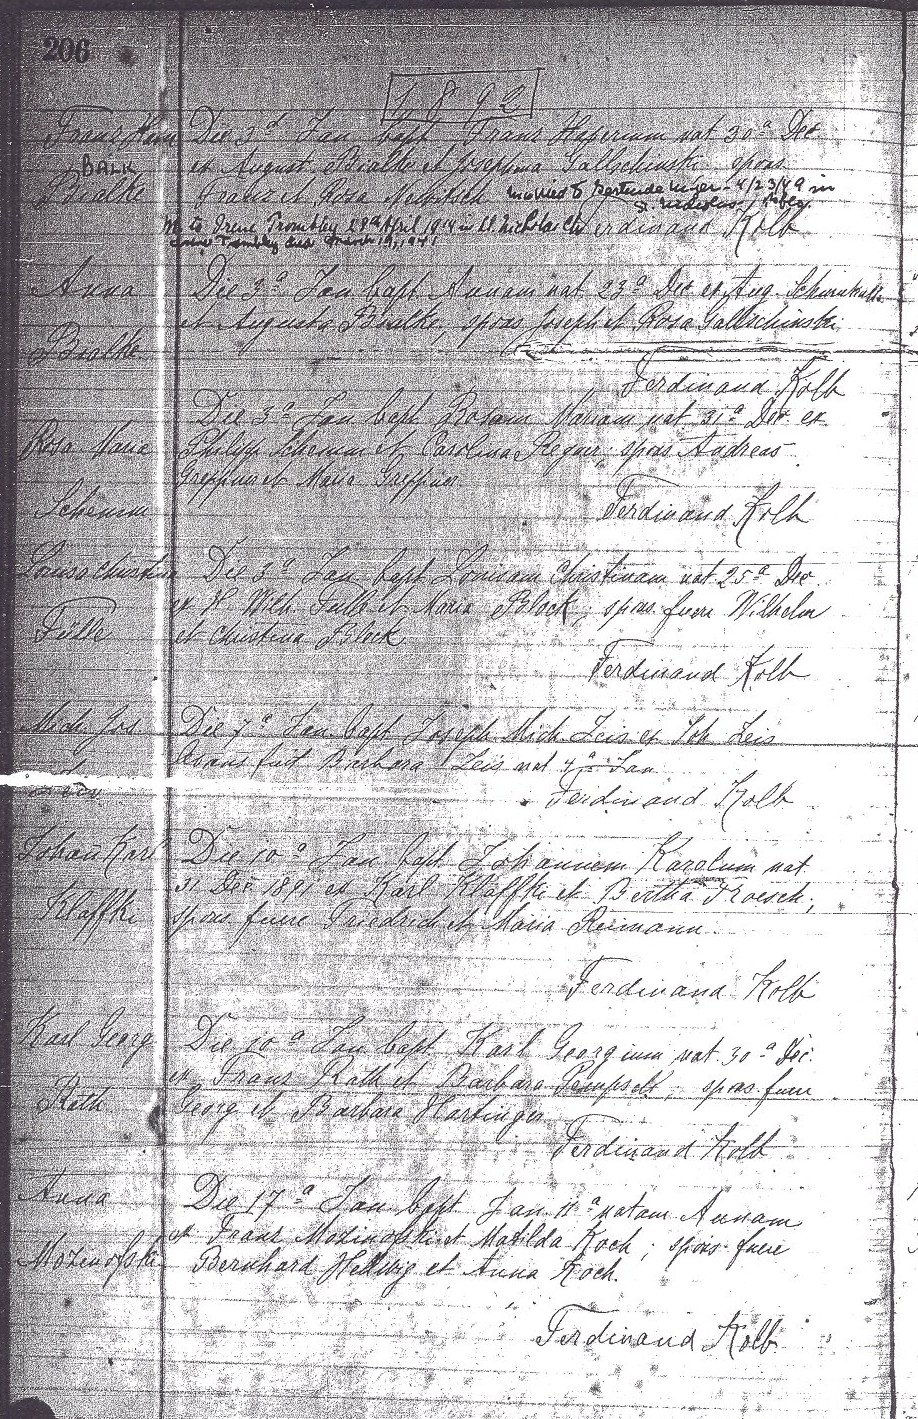 206
1892
Franz Hein Die 3a Jan bapt Franz Hyperium nat 30a Dec
BALK
Bialke
ex August Bialke et Josephina Gallschinski spons
Franz et Rosa married to Gertrude 4/23/49 in
to Irene Trombley 28th April 1914 in St Nicholas Ch Ferdinand Kolb
Irene Trombley died March 19, 1941
Anna Die 3a Jan bapt Annam nat 23a Dec ex Aug.
et Augusta Bialke, spons Joseph et Rosa Gallschinski
Bialke
Ferdinand Kolb
Die 3a Jan bapt Rosam Mariam nat 31a Dec ex
Rosa Maria Philipp Schemm et Carolina Regner, spons Andreas
Greppner et Maria Greppner
Schemm Ferdinand Kolb
Louisa Christina Die 3a Jan bapt Louisam Christinam nat 25a Dec
ex H Wilh Fulle et Maria Block, spons. fuere Wilhelm
Fulle et Christina Block
Ferdinand Kolb
Mich. Jos Die 7a Jan bapt Joseph Mich Leis ex Joh Leis
fuit Barbara Leis nat 4a Jan
Leis Ferdinand Kolb
Johan Karl Die 10a Jan bapt Johannem Karolum nat
31 Dec 1891 ex Karl Klaffki et Bertha Troesch;
Klaffki spons fuere Friedrich et Maria Reimann.
Ferdinand Kolb
Karl Georg Die 10a Jan bapt Karl Georgium nat. 30a Dec.
ex Franz Roth et Barbara; spons fuere
Roth Georg et Barbara Hartinger
Ferdinand Kolb
Anna Die 17a Jan bapt Jan 11a natam Annam
ex Franz Mozinofski et Matilda Koch; spons fuere
Mozenofski Bernhard Hellwig et Anna Koch.
Ferdinand Kolb